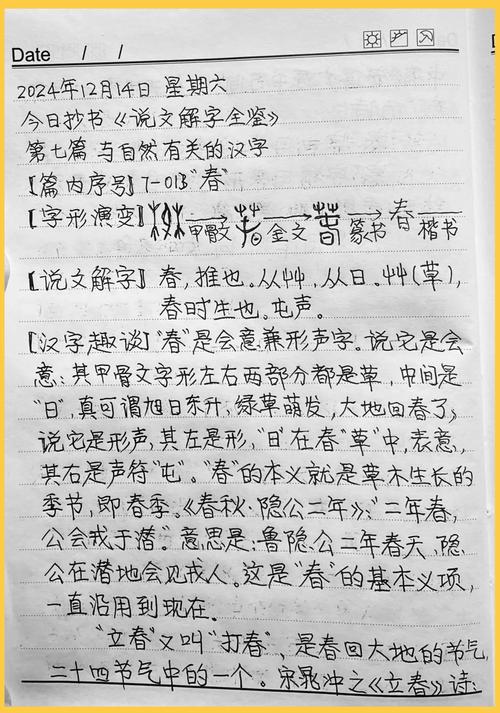 Date / /
2024年12月14日 星期六
今日抄书《说文解字全鉴》
第七篇 与自然有关的汉字
【篇内序号】7-013"春"
【字形演变】甲骨文 金文 篆书 春 楷书
【说文解字】春,推也。从艸,从日。艸(草),
春时生也。屯声。
【汉字趣谈】"春"是会意兼形声字。说它是会
意:其甲骨文字形左右两部分都是草,中间是
"日",真可谓旭日东升,绿草萌发,大地回春了,
说它是形声,其左是形,"日"在春"草"中,表意,
其右是声符"屯"。"春"的本义就是草木生长的
季节,即春季。《春秋·隐公二年》:"二年春,
公会戎于潜。"意思是:鲁隐公二年春天,隐
公在潜地会见戎人。这是"春"的基本义项,
一直沿用到现在。
"立春"又叫"打春",是春回大地的节气,
二十四节气中的一个。宋晁冲之《立春》诗: